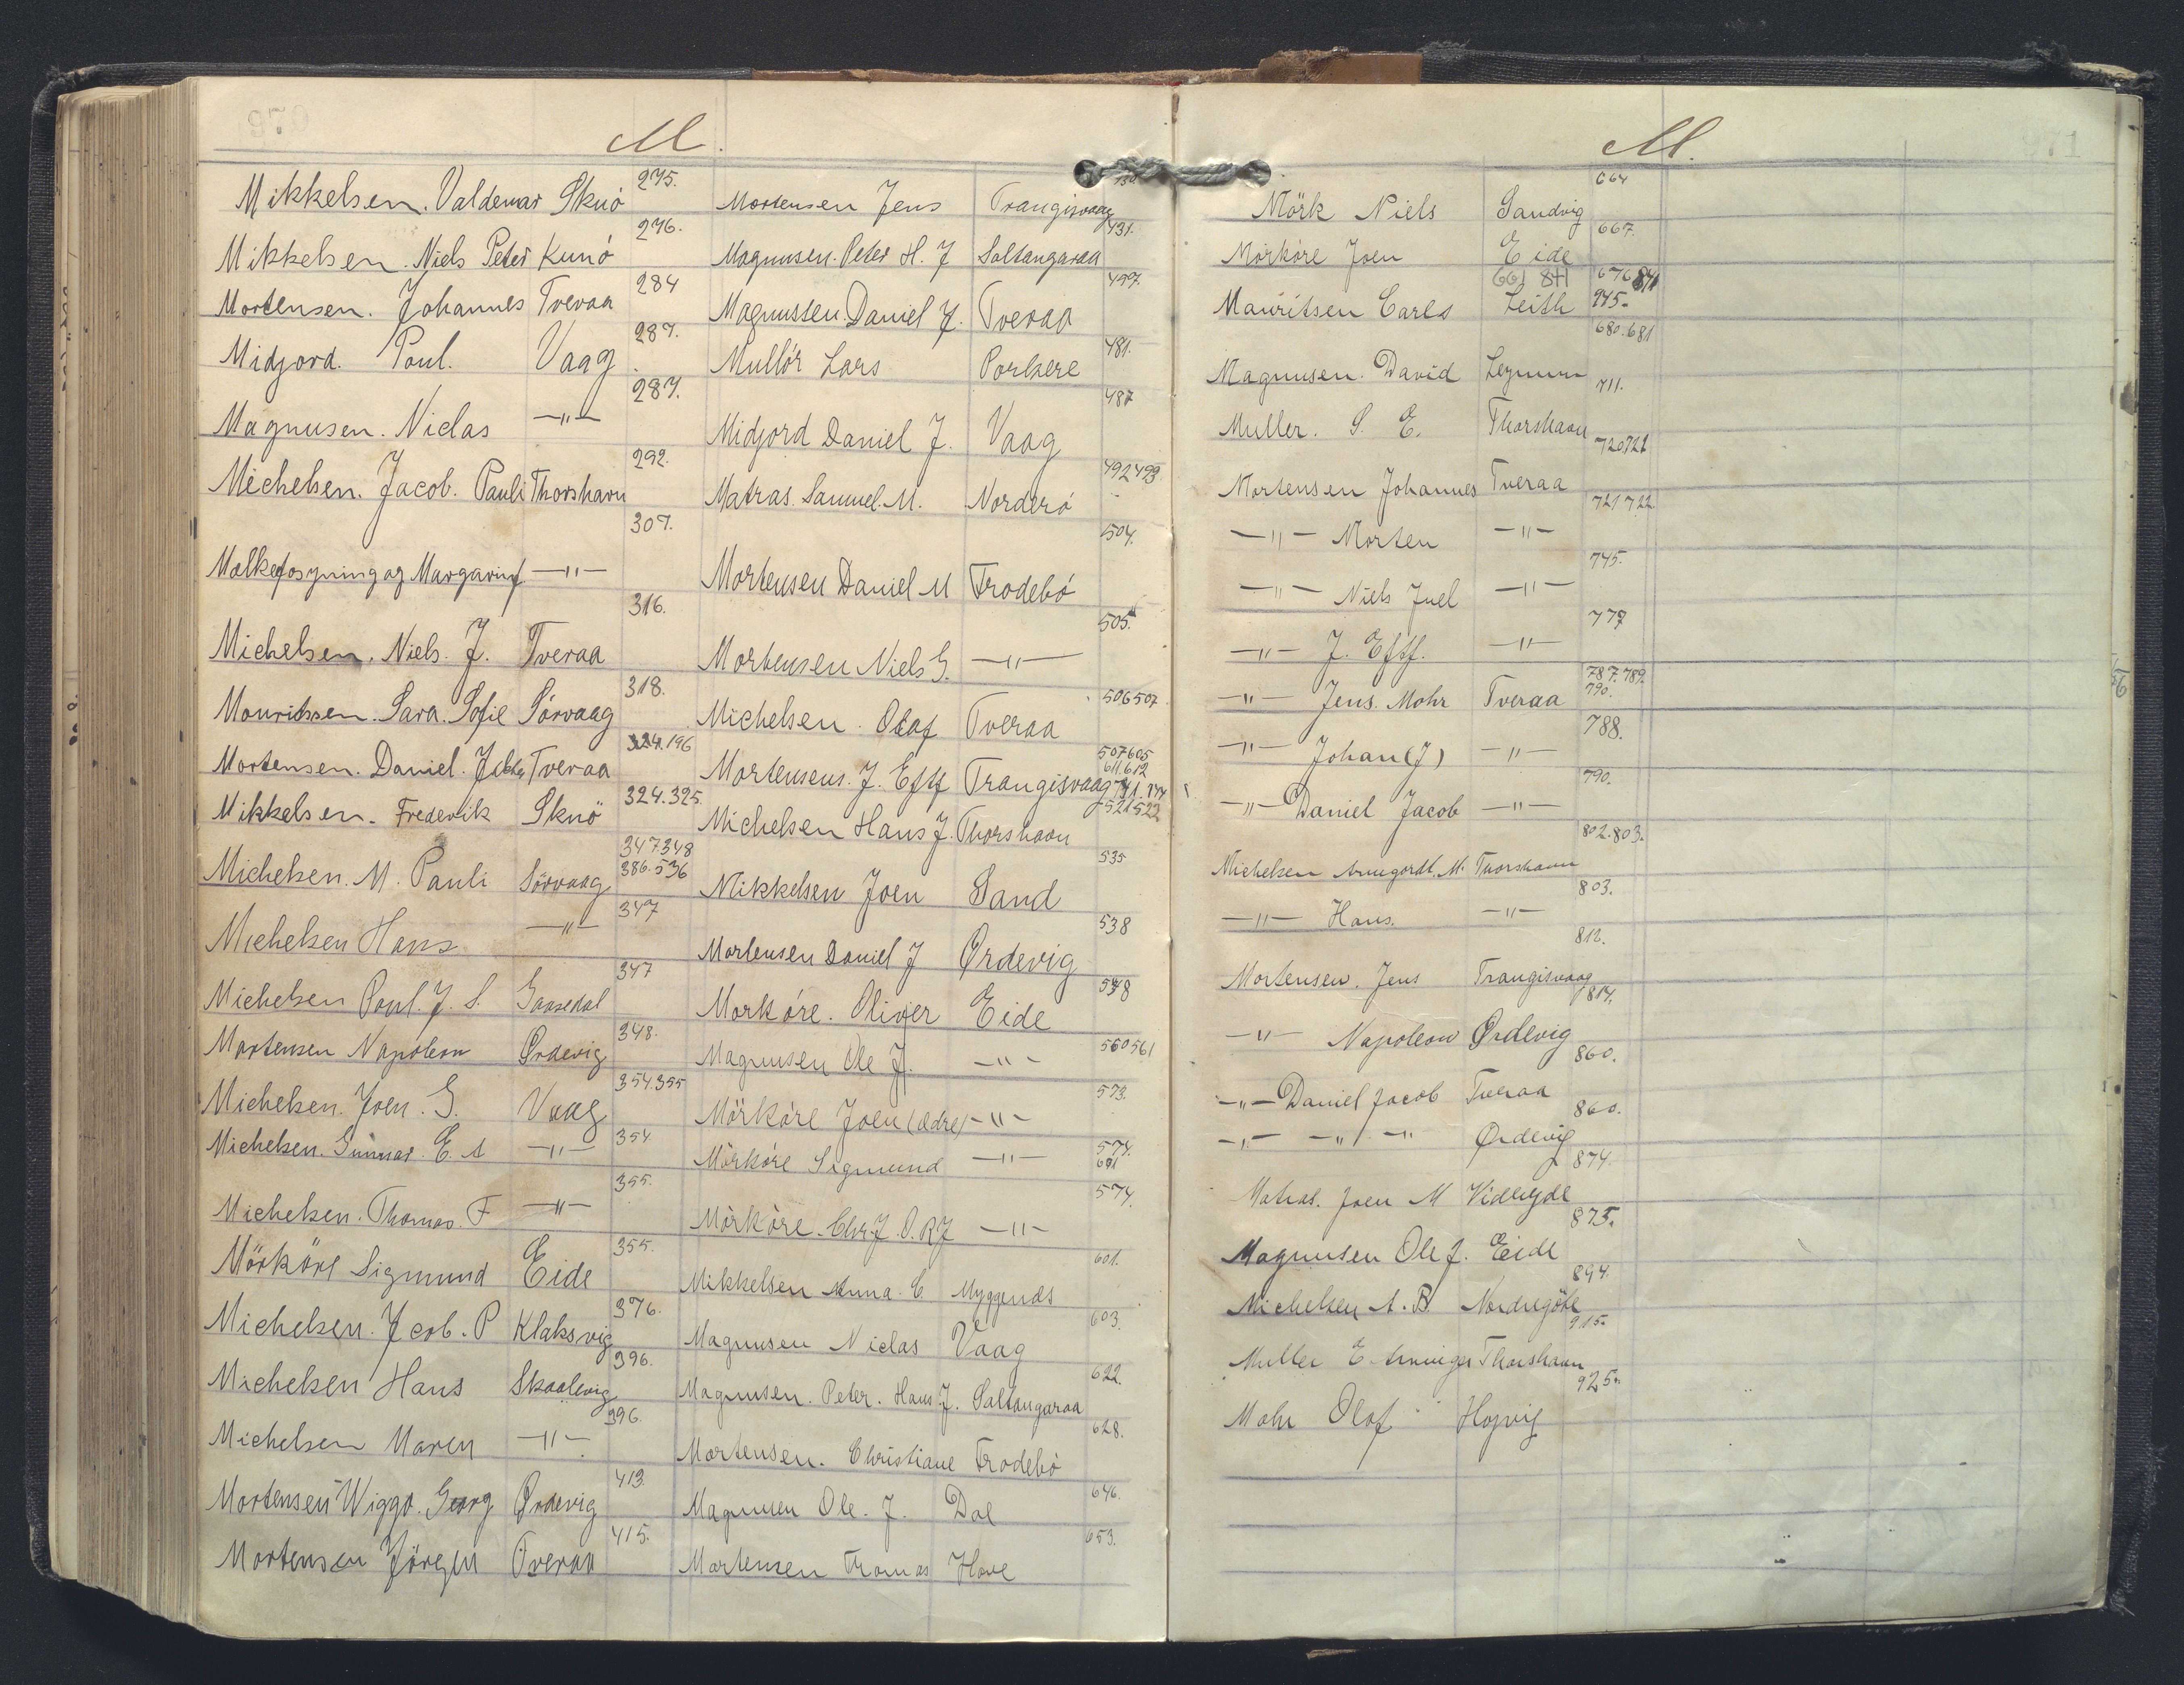 M.
Mikkelsen. Valdemar Skuö 275.
Mikkelsen. Niels Peter Kunö 276.
Mortensen. Johannes Tveraa 284
Midjord. Poul. Vaag 287.
Magnusen. Niclas —"— 287.
Michelsen. Jacob. Pauli Thorshavn 292.
Mælkeforsyning og Margarinf. —"— 307.
Michelsen. Niels. J. Tveraa 316.
Mouritssen. Sara. Sofie Sörvaag 318.
Mortensen. Daniel. Tveraa 324.196
Mikkelsen. Frederik Skuö 324.325
Michelsen. M. Pauli Sörvaag 347348 386.536
Michelsen Hans —"— 347
Michelsen Poul. J. S. Gaasedal 347
Mortensen Napoleon Ördevig 348.
Michelsen. Joen. G. Vaag 354.355
Michelsen. Gunnar. E. A —"— 354
Michelsen. Thomas. F —"— 355.
Mörköre Sigmund Eide 355.
Michelsen. Jcob. P Klaksvig 376.
Michelsen Hans Skaalevig 396.
Michelsen Maren —"— 396.
Mortensen Wiggo. Georg Ördevig 413
Mortensen Jörgen Tveraa 415.
Mortensen Jens Trangisvaag
Magnusen. Peter H. J Saltangaraa 431.
Magnussen. Daniel J. Tveraa 477
Mullör Lars Porkere 481.
Midjord Daniel J. Vaag 487
Matras. Samuel. M. Norderö 492493
Mortensen Daniel M Frodebö 504.
Mortensen Niels G. —"— 505.
Michelsen. Olaf Tveraa 506507
Mortensens. J. Eftf Trangisvaag 507605 611.612
Michelsen Hans J. Thorshavn 521522
Mikkelsen Joen Sand 535
Mortensen Daniel J Ördevig 538
Morköre. Oliver Eide 548
Magnusen Ole J. —"— 560561
Mörköre Joen (ældre) —"— 573.
Mörköre Sigmund —"— 574. 601
Mörköre. Chr. J. O. R J —"— 574.
Mikkelsen Anna. C Myggenæs 601.
Magnusen Niclas Vaag 603.
Magnusen. Peter. Hans J. Saltangaraa 622.
Mortensen. Christiane Frodebö 628.
Magnusen Ole. J. Dal 646.
Mortensen Tromas Hove 653.
M.
Mörk Niels Sandvig 664
Mörköre Joen Eide 667.
Mauritsen Carls Leith 945.
Magnusen. David Leynum 680.681
Muller. S. E. Thorshavn 711.
Mortensen Johannes Tveraa 720721
—"— Morten —"— 721722
—"— Niels Juel —"— 745.
—"— J. Eftf. —"— 777
—"— Jens. Mohr Tveraa 787.789. 790.
—"— Johan (J) —"— 788.
—"— Daniel Jacob —"— 790.
Michelsen Anngordt. M. Thorshavn 802.803.
—"— Hans. —"— 803.
Mortensen. Jens Trangisvaag 812.
—"— Napoleon Ördevig 814.
—"— Daniel Jacob Tveraa 860.
—"— —"— —"— Ördevig 860.
Matras. Joen M Videride 874.
Magnusen Ole J. Eide 875.
Michelsen A. B. Nordregöte 894.
Muller E. Thorshavn 915.
Mohr Olof Hojvig 925.